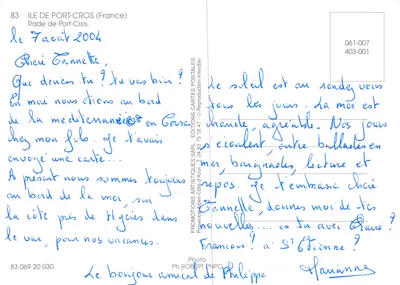 83 ILE DE PORT-CROS (France)
Rade de Port-Cros.
le 7 août 2004
Chéri Nannette,
Que deviens tu ? tu vas bien ?
En mai nous étions au bord
de la méditerranée en Corse
chez mon fils. je t'avais
envoyé une carte...
A présent nous sommes toujours
au bord de la mer, sur
la côte près de Hyères dans
le var, pour nos vacances.
83 069 20 030
Le bonjour amical de Philippe
PROMOTIONS ARTISTIQUES SARL EDITIONS CARTES POSTALES
Reproduction interdite
Photo
Ph. ROBERT PNPC
061-007
403-001
Le soleil est au rendez vous
tous les jours. La mer est
chaude, agréable. Nos jours
s'écoulent, entre ballades en
mer, baignades, lecture et
repos. je t'embrasse chère
Nannette, donnes moi de tes
nouvelles.... es tu avec
François ? à St Etienne ?
Marianne